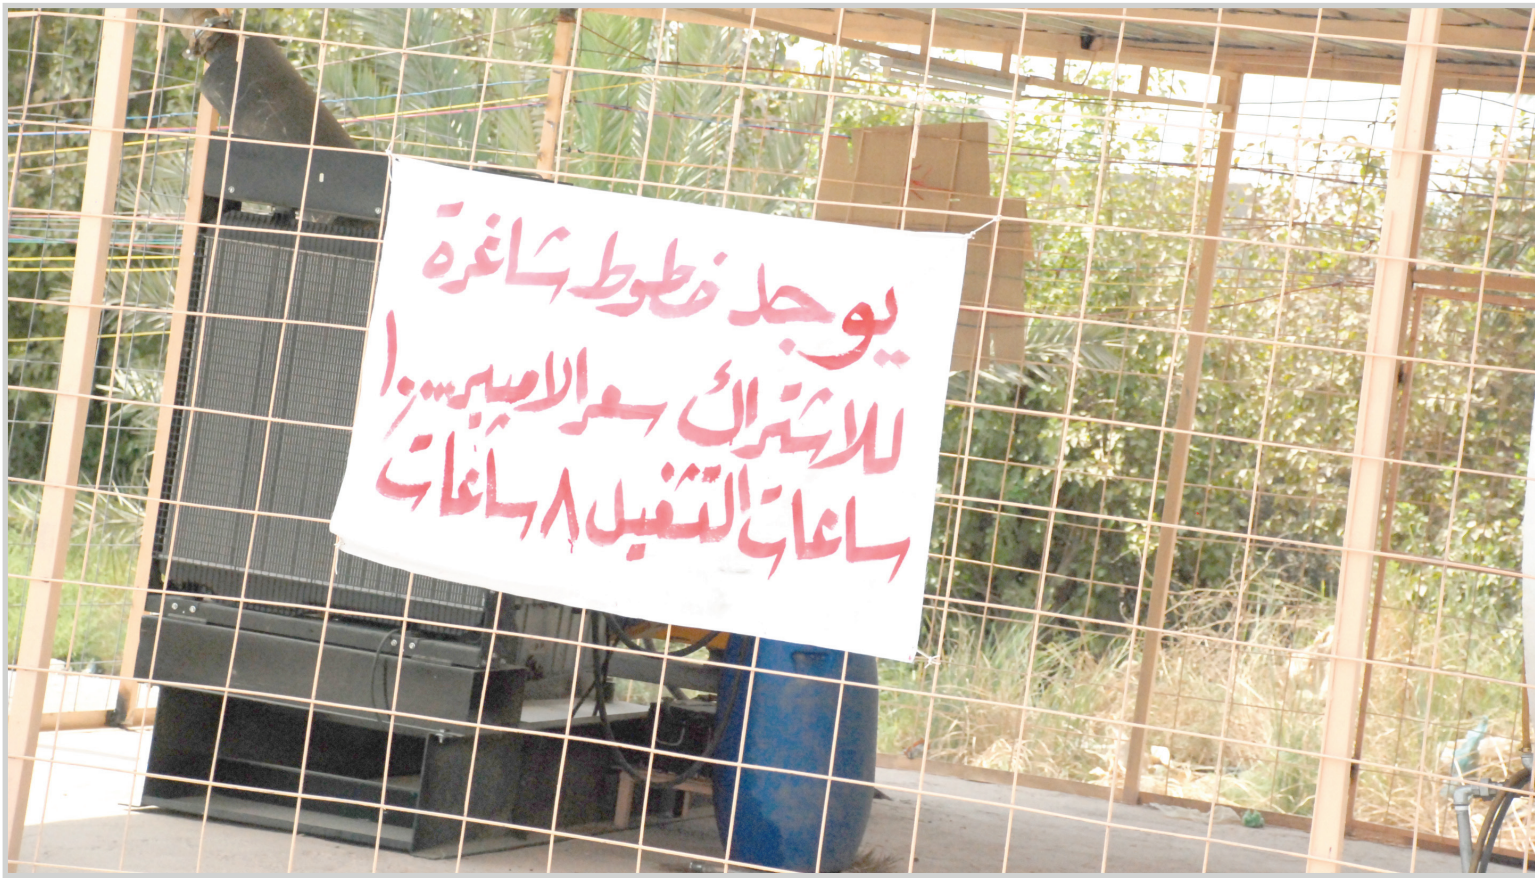 يوجد خطوط شاغرة
للاشتراك سعر الامبير ١٠٠٠٠
ساعات التشغيل ٨ ساعات